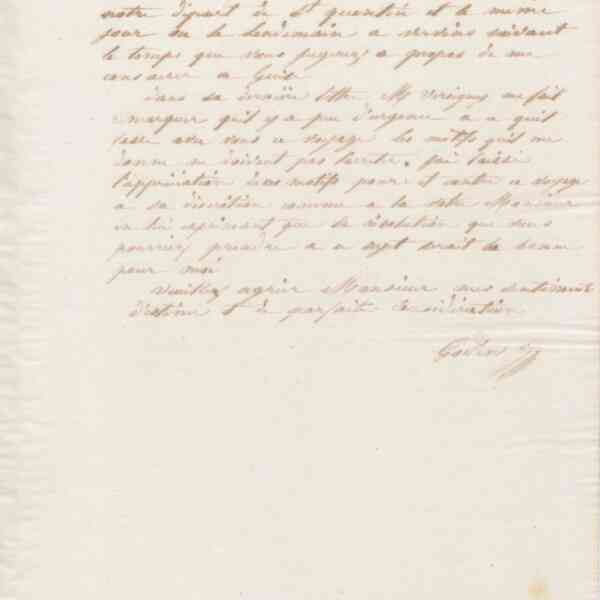 notre départ de St quentin et le meme
jour ou le lendemain a vervins suivant
le temps que vous jugerez a propos de me
consacrer a Guise
dans sa derniére lettre M Vérigny me fait
remarquer qu'il y a peu d'urgence a ce qu'il
fasse avec vous ce voyage les motifs qu'il me
donne ne doivent pas l'arreter, j'ai laissé
l'appréciation des motifs pour et contre ce voyage
a sa discrétion comme a la votre Monsieur
en lui exprimant que la résolution que vous
pourriez prendre a ce sujet serait la bonne
pour moi
veuillez agréer Monsieur mes sentiments
d'estime et de parfaite considération
Godin